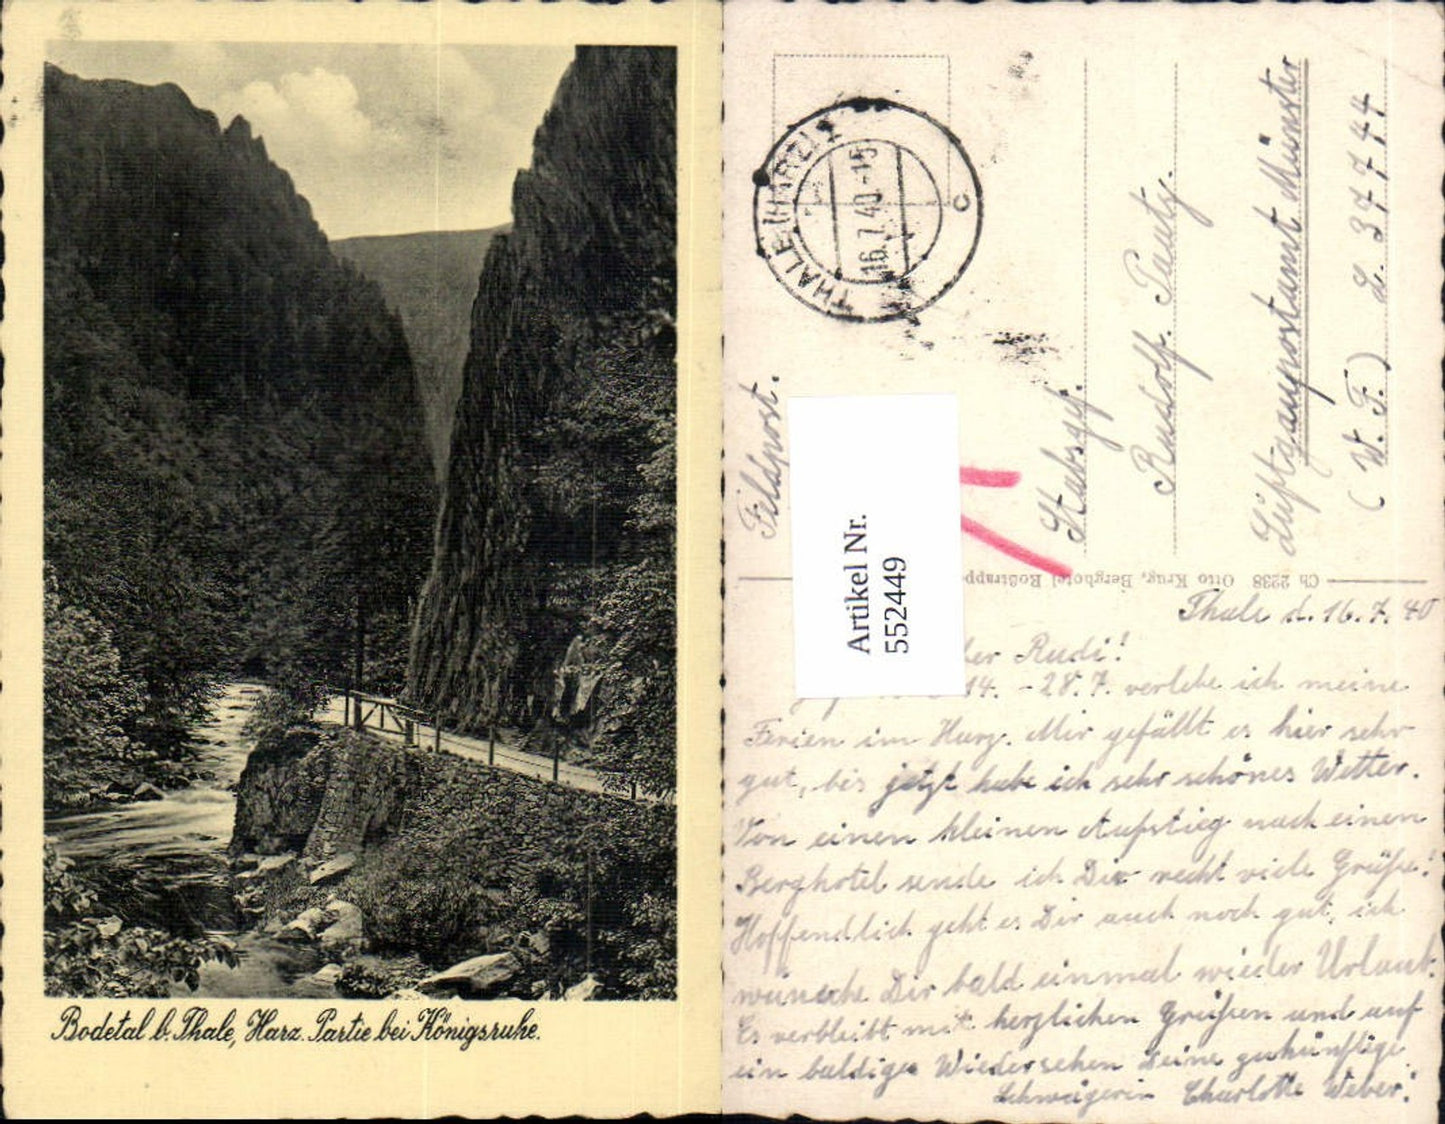 Bodetal b. Thale, Harz. Partie bei Königsruhe.
THALE (HARZ) 1
16.7.40.-15
c
Feldpost.
Stabsgefr.
Rudolf
Luftgaupostamt Münster
(W. F.) L. 37744
Artikel Nr.
552449
Ch 2238 Otto Krug, Berghotel Roßtrappe
Thale d. 16.7.40
Rudi!
14. - 28.7. verlebe ich meine
Ferien im Harz. Mir gefällt es hier sehr
gut, bis jetzt habe ich sehr schönes Wetter.
Von einem kleinen Aufstieg nach einem
Berghotel sende ich Dir recht viele Grüße!
Hoffendlich geht es Dir auch noch gut, ich
wünsche Dir bald einmal wieder Urlaub.
Es verbleibt mit herzlichen Grüßen und auf
ein baldiges Wiedersehen Deine zukünftige
Schwägerin Charlotte Weber!